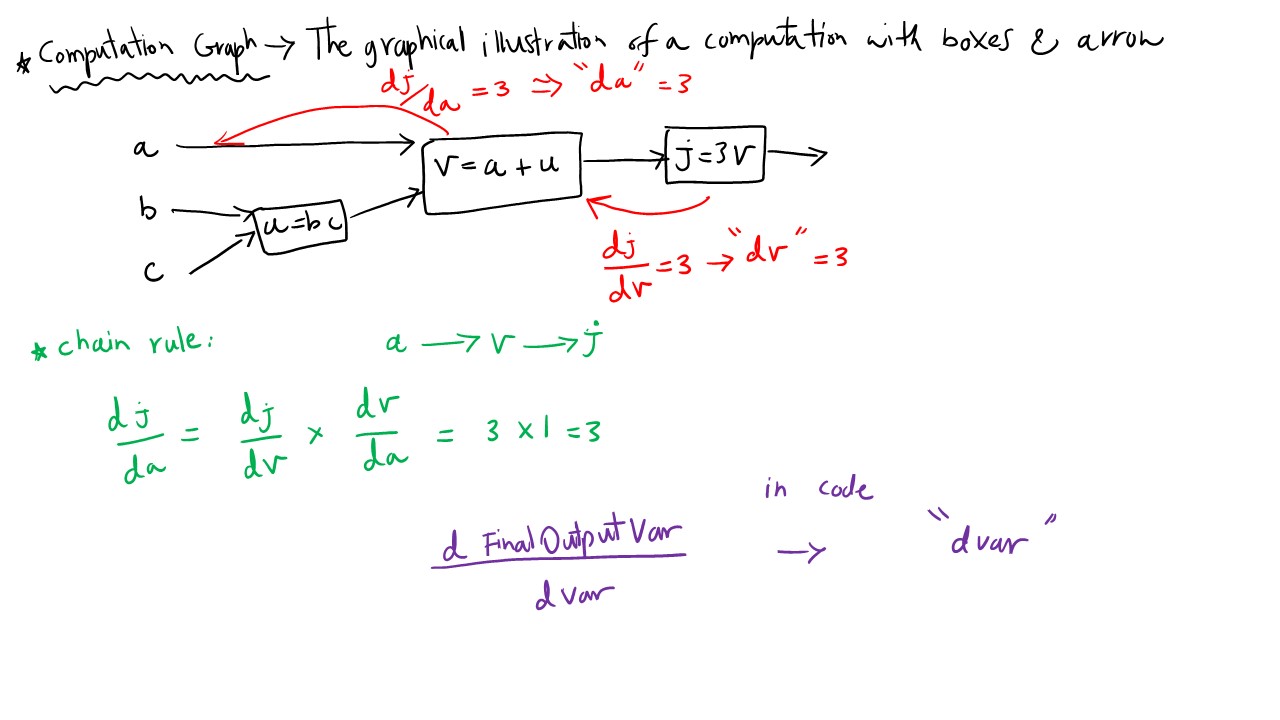 * Computation Graph → The graphical illustration of a computation with boxes & arrow
dj/da = 3 ⇒ "da" = 3
a
v = a + u
j = 3v
b
u = bc
c
dj/dv = 3 → "dv" = 3
* chain rule:
a → v → j
dj/da = dj/dv × dv/da = 3 × 1 = 3
in code
d FinalOutputVar / dvar → "dvar"